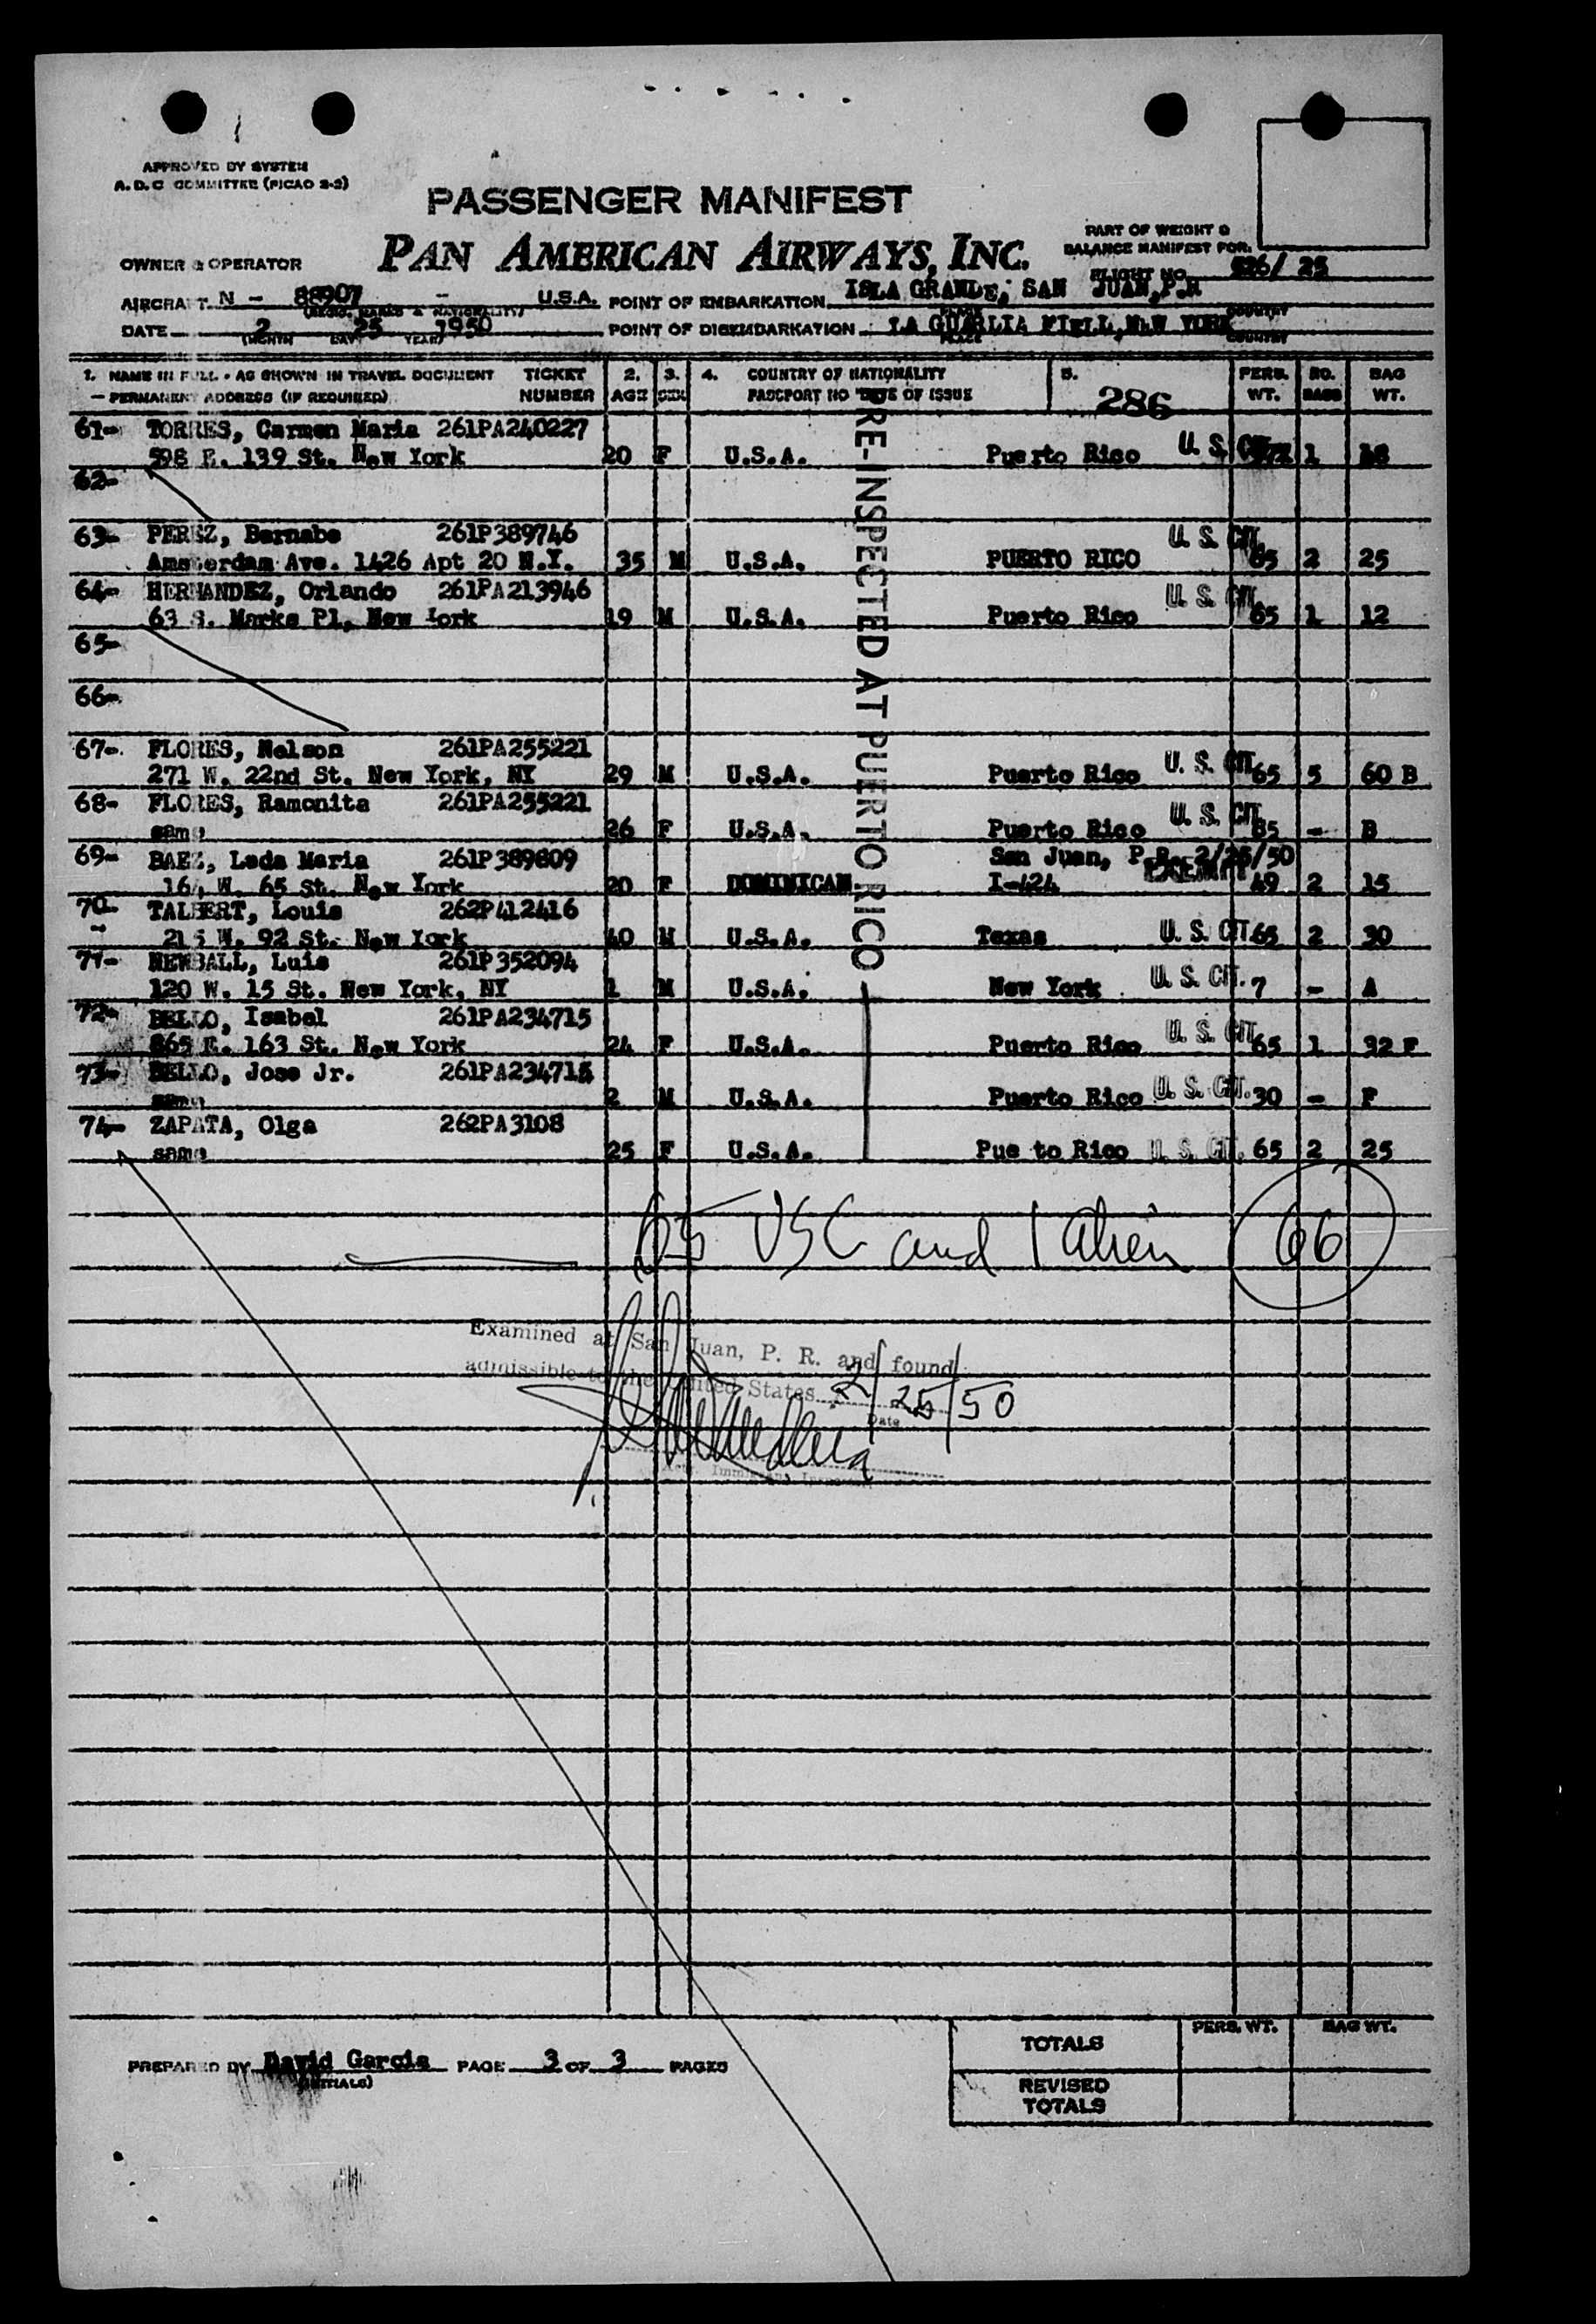 APPROVED BY SYSTEM
A.D.C COMMITTEE (PICAO 2-2)
PASSENGER MANIFEST
PAN AMERICAN AIRWAYS, INC.
PART OF WEIGHT &
BALANCE MANIFEST FOR
OWNER & OPERATOR
FLIGHT NO. 526/ 25
AIRCRAFT N - 88907 - U.S.A. POINT OF EMBARKATION ISLA GRANDE, SAN JUAN, P.R
(REGIS. MARKS & NATIONALITY) PLACE COUNTRY
DATE 2 25 1950 POINT OF DISEMBARKATION LA GUARDIA FIELD, NEW YORK
(MONTH DAY YEAR) PLACE COUNTRY
1. NAME IN FULL - AS SHOWN IN TRAVEL DOCUMENT TICKET 2. 3. 4. COUNTRY OF NATIONALITY 5. PERS. NO. BAG
— PERMANENT ADDRESS (IF REQUIRED) NUMBER AGE SEX PASSPORT NO DATE OF ISSUE 286 WT. BAGS WT.
PRE-INSPECTED AT PUERTO RICO
61- TORRES, Carmen Maria 261PA240227
598 E. 139 St. New York 20 F U.S.A. Puerto Rico U. S. CIT. 1 18
62-
63- PEREZ, Bernabe 261P389746
Amsterdam Ave. 1426 Apt 20 N.Y. 35 M U.S.A. PUERTO RICO U. S. CIT. 65 2 25
64- HERNANDEZ, Orlando 261PA213946
63 S. Marks Pl, New York 19 M U.S.A. Puerto Rico U. S. CIT. 65 1 12
65-
66-
67- FLORES, Nelson 261PA255221
271 W. 22nd St. New York, NY 29 M U.S.A. Puerto Rico U. S. CIT. 65 5 60 B
68- FLORES, Ramonita 261PA255221
same 26 F U.S.A. Puerto Rico U. S. CIT. 65 - B
69- BAEZ, Leda Maria 261P389809 San Juan, P.R. 2/25/50
164 W. 65 St. New York 20 F DOMINICAN I-424 EXEMPT 49 2 15
70- TALBERT, Louis 262P412416
215 W. 92 St. New York 40 M U.S.A. Texas U. S. CIT. 65 2 30
71- NEWBALL, Luis 261P352094
120 W. 15 St. New York, NY 1 M U.S.A. New York U. S. CIT. 7 - A
72- BELLO, Isabel 261PA234715
865 E. 163 St. New York 24 F U.S.A. Puerto Rico U. S. CIT. 65 1 32 F
73- BELLO, Jose Jr. 261PA234715
same 2 M U.S.A. Puerto Rico U. S. CIT. 30 - F
74- ZAPATA, Olga 262PA3108
same 25 F U.S.A. Pue to Rico U. S. CIT. 65 2 25
65 USC and 1 alien 66
Examined at San Juan, P. R. and found
admissible to the United States 2/25/50
Date
Immigrant Inspector
TOTALS PERS. WT. BAG WT.
PREPARED BY David Garcia PAGE 3 OF 3 PAGES
(INITIALS)
REVISED
TOTALS